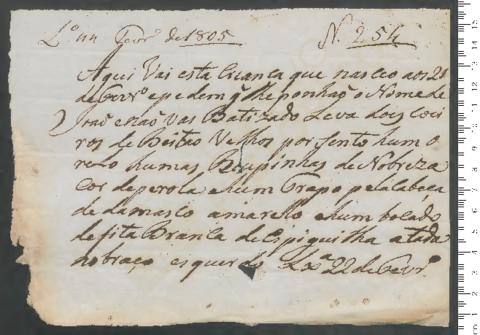 Lº 44 Fevrº de 1805 Nº 254
Aqui Vai esta Criança que nasceo aos 21
de Fevrº e pedem q lhe ponhaõ o Nome de
e naõ vas Batizado Leva dois
ros de Beitão Velhos por sento hum
humas Roupinhas de Nobreza
Cor de perola, e hum Trapo pela Cabeça
de damasco amarello e hum bocado
de fita Branca de Espiguilha atada
no braço esquerdo Lxª 22 de Fevrº